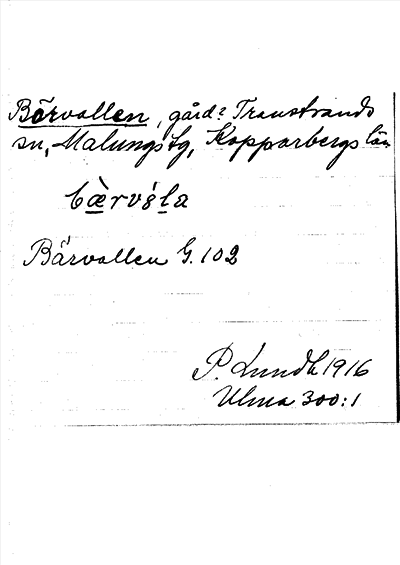 Börvallen, gård? Transtrands
sn, Malungs tg, Kopparbergs län
bærvșla
Bärvallen G. 102
P. Lundh 1916
Ulma 300:1